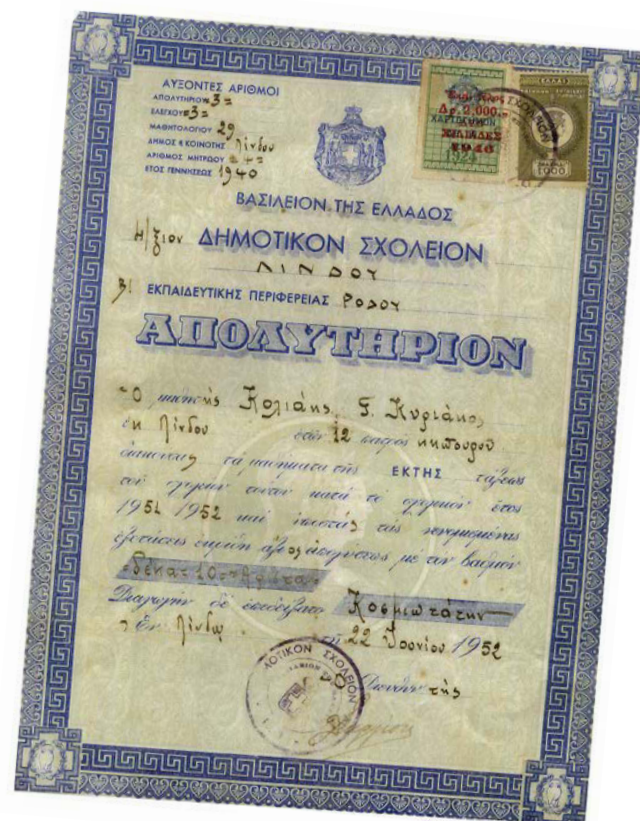 ΑΥΞΟΝΤΕΣ ΑΡΙΘΜΟΙ
ΑΠΟΛΥΤΗΡΙΟΥ =3=
ΕΛΕΓΧΟΥ =3=
ΜΑΘΗΤΟΛΟΓΙΟΥ 29
ΔΗΜΟΣ ή ΚΟΙΝΟΤΗΣ Λίνδου
ΑΡΙΘΜΟΣ ΜΗΤΡΩΟΥ =4=
ΕΤΟΣ ΓΕΝΝΗΣΕΩΣ 1940
Δρ. 2.000.-
ΧΑΡΤΟΣΗΜΟΝ
ΧΙΛΙΑΔΕΣ
1946
1924
1000
ΒΑΣΙΛΕΙΟΝ ΤΗΣ ΕΛΛΑΔΟΣ
ΔΗΜΟΤΙΚΟΝ ΣΧΟΛΕΙΟΝ
ΛΙΝΔΟΥ
Β! ΕΚΠΑΙΔΕΥΤΙΚΗΣ ΠΕΡΙΦΕΡΕΙΑΣ ΡΟΔΟΥ
ΑΠΟΛΥΤΗΡΙΟΝ
Ὁ μαθητής Κολιάκης Γ. Κυριάκος
ἐκ Λίνδου ἐτῶν 12 κηπουροῦ
διακούσας τὰ μαθήματα τῆς ΕΚΤΗΣ τάξεως
τοῦ σχολείου τούτου κατὰ τὸ σχολικὸν ἔτος
1951 1952 καὶ ὑποστάς τὰς νενομισμένας
ἐξετάσεις εὑρέθη ἄξιος ἀπολύσεως μὲ τὸν βαθμὸν
=Δέκα=10=Ἄριστα=
Διαγωγὴν δὲ ἐπεδείξατο Κοσμιωτάτην
Ἐν Λίνδῳ τῇ 22 Ἰουνίου 1952
Ὁ Διευθυντής
ΔΗΜΟΤΙΚΟΝ ΣΧΟΛΕΙΟΝ